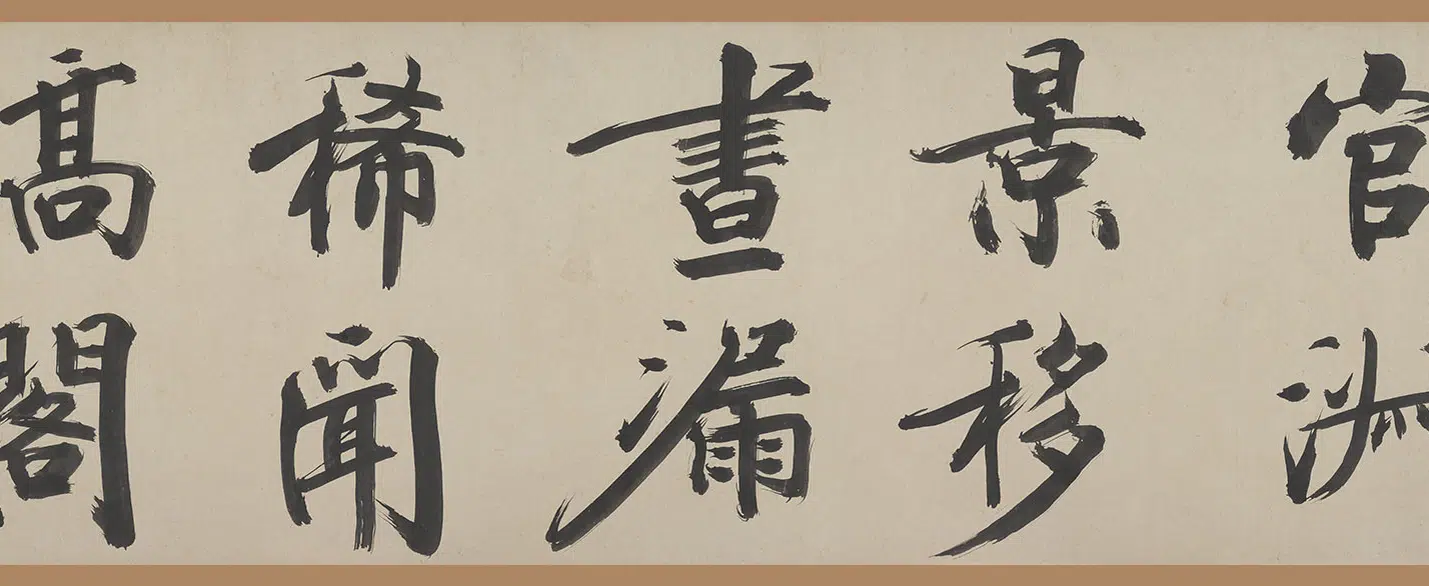 官淑
景移
晝漏
稀聞
髙閣